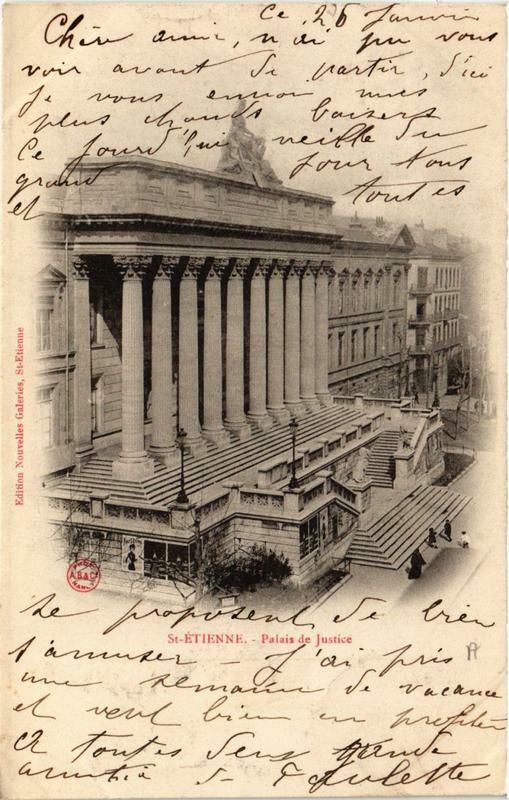 Ce 26 Janvier
Chère amie, n'ai pu vous
voir avant de partir, d'ici
je vous envoie mes
plus chauds baisers
Ce jourd'hui veille du
grand jour nous
et toutes
Edition Nouvelles Galeries, St-Etienne
PHOT
A.B&C
NANCY
se proposent de bien
St-ÉTIENNE. - Palais de Justice
s'amuser - J'ai pris
une semaine de vacance
et veut bien en profiter
à toutes deux grande
amitié de Paulette